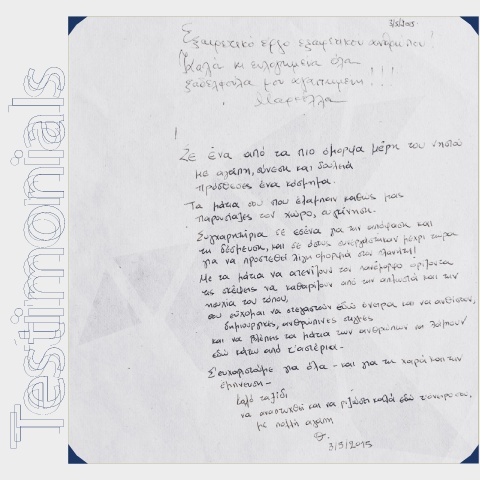 Testimonials
3/5/2015
Εξαιρετικό έργο εξαιρετικού ανθρώπου!
Καλά κι ευλογημένα όλα
ξαδελφούλα μου αγαπημένη!!!
Μαρκέλλα
Σε ένα από τα πιο όμορφα μέρη του νησιού
με αγάπη, σύνεση και δουλειά
πρόσθεσες ένα κόσμημα.
Τα μάτια σου που έλαμπαν καθώς μας
παρουσίαζες τον χώρο, συγκίνηση.
Συγχαρητήρια σε εσένα για την απόφαση και
τη δέσμευση, και σε όσους συνεργάστηκαν μέχρι τώρα
για να προστεθεί λίγη ομορφιά στον πλανήτη!
Με τα μάτια να ατενίζουν τον πανέμορφο ορίζοντα
τις σκέψεις να καθαρίζουν από την απλωσιά και την
ησυχία του τόπου,
σου εύχομαι να στεγαστούν εδώ όνειρα και να ανθίσουν,
δημιουργικές, ανθρώπινες στιγμές
και να βλέπεις τα μάτια των ανθρώπων να λάμπουν
εδώ κάτω από τ'αστέρια -
Σ'ευχαριστούμε για όλα - και για τη χαρά και την
έμπνευση -
Καλό ταξίδι
να αναπτυχθεί και να ριζώσει καλά εδώ τ'όνειρο σου,
με πολλή αγάπη
3/5/2015